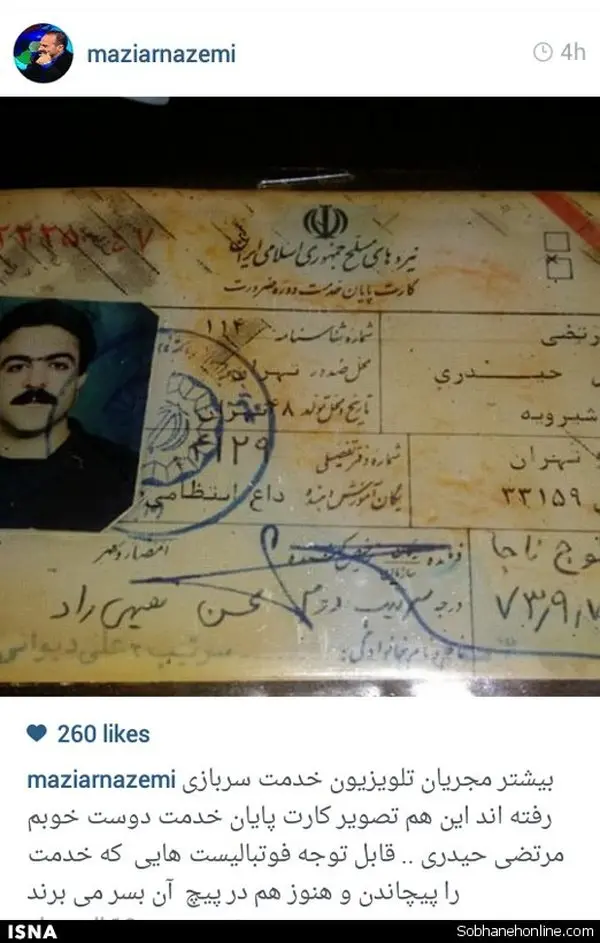 maziarnazemi
4h
نیروهای مسلح جمهوری اسلامی ایران
کارت پایان خدمت دوره ضرورت
شماره شناسنامه ۱۱۴
محل صدور تهران
رتضی
حیدری
تاریخ و محل تولد ۴۸ تهران
شیرویه
شماره دفتر تفضیلی ۴۱۲۹
تهران
یگان آموزش دهنده داغ انتظامی
۳۳۱۵۹
امضاء و مهر
فرمانده
ناجا
درجه سرتیپ دوم محسن
۷۳/۹/۷
سرتیپ ۲ علی دیوانی
260 likes
maziarnazemi بیشتر مجریان تلویزیون خدمت سربازی
رفته اند این هم تصویر کارت پایان خدمت دوست خوبم
مرتضی حیدری .. قابل توجه فوتبالیست هایی که خدمت
را پیچاندن و هنوز هم در پیچ آن بسر می برند
ISNA
Sobhanehonline.com